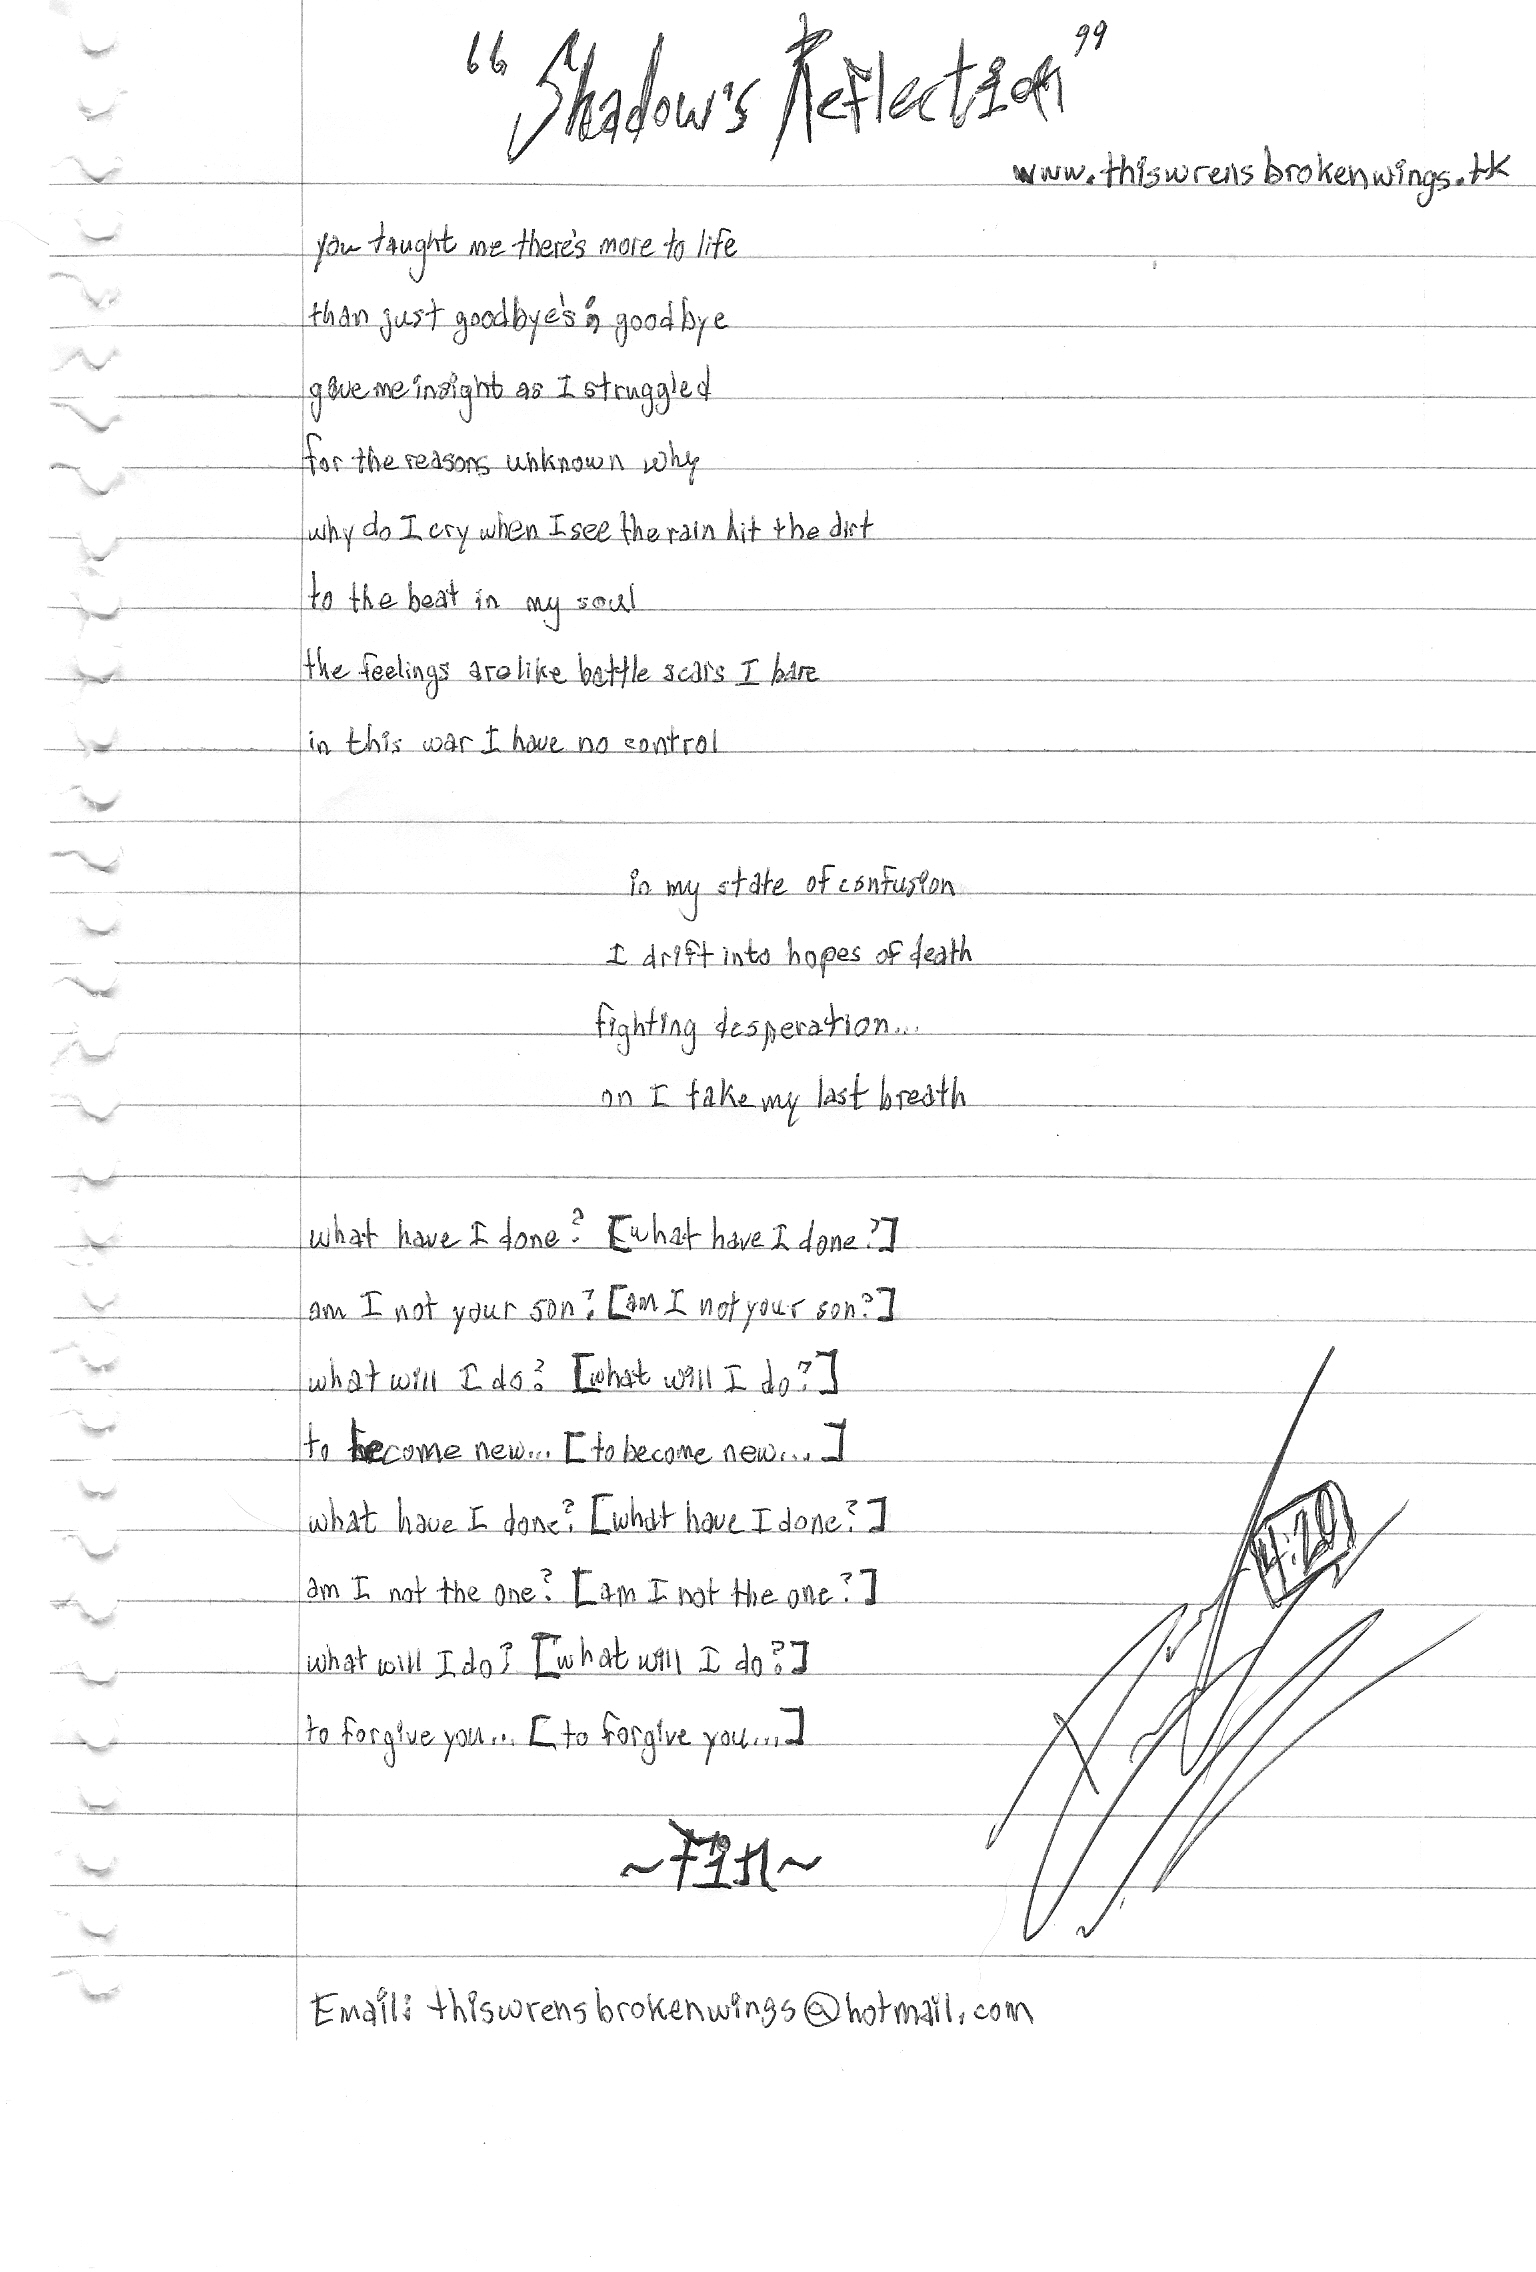 "Shadow's Reflection"
www.thiswrensbrokenwings.tk
you taught me there's more to life
than just goodbye's, goodbye
gave me insight as I struggled
for the reasons unknown why
why do I cry when I see the rain hit the dirt
to the beat in my soul
the feelings are like battle scars I bare
in this war I have no control
in my state of confusion
I drift into hopes of death
fighting desperation...
on I take my last breath
what have I done? [what have I done?]
am I not your son? [am I not your son?]
what will I do? [what will I do?]
to become new... [to become new...]
what have I done? [what have I done?]
am I not the one? [am I not the one?]
what will I do? [what will I do?]
to forgive you... [to forgive you...]
4:20
~Fin~
Email: thiswrensbrokenwings@hotmail.com